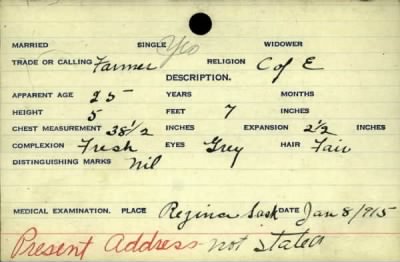 MARRIED SINGLE Yes WIDOWER
TRADE OR CALLING Farmer RELIGION C of E
DESCRIPTION.
APPARENT AGE 25 YEARS MONTHS
HEIGHT 5 FEET 7 INCHES
CHEST MEASUREMENT 38 1/2 INCHES EXPANSION 2 1/2 INCHES
COMPLEXION Fresh EYES Grey HAIR Fair
DISTINGUISHING MARKS Nil
MEDICAL EXAMINATION. PLACE Regina Sask DATE Jan 8/915
Present Address not stated